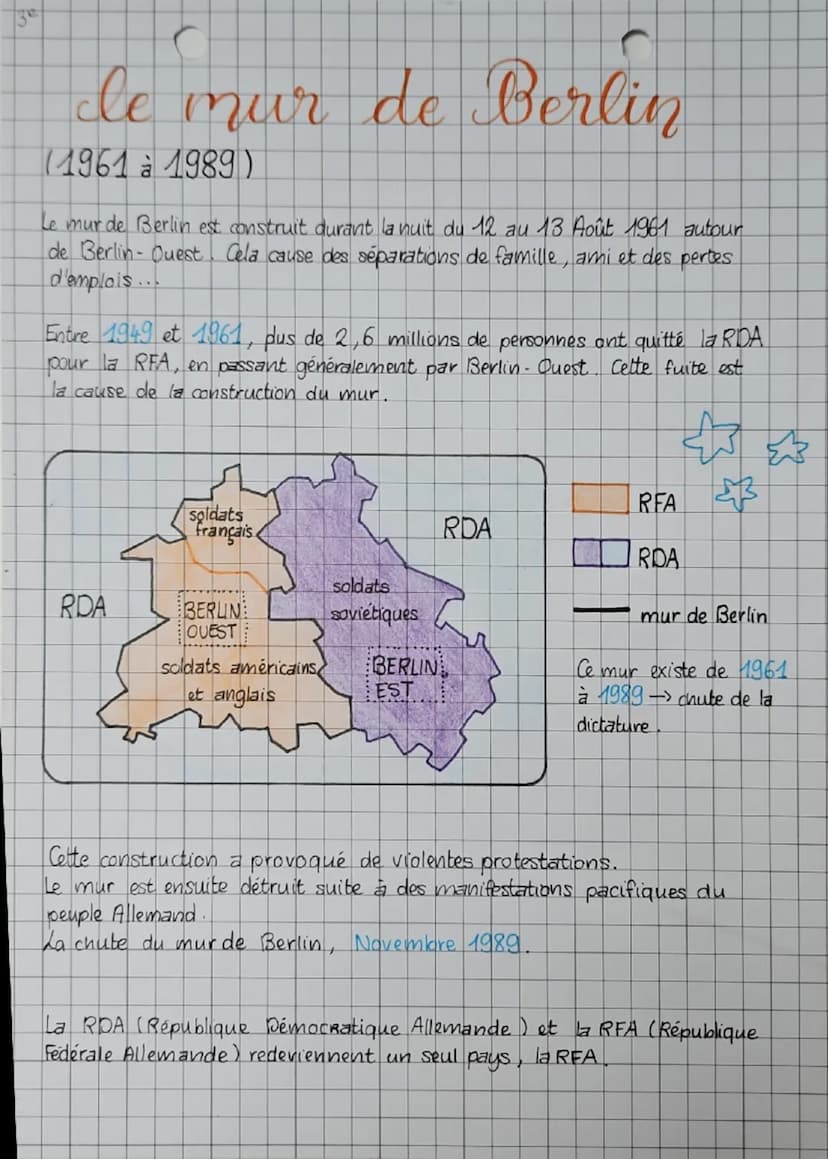 3e
Le mur de Berlin
(1961 à 1989)
Le mur de Berlin est construit durant la nuit du 12 au 13 Août 1961 autour
de Berlin-Ouest. Cela cause des séparations de famille, ami et des pertes
d'emplois...
Entre 1949 et 1961, plus de 2,6 millions de personnes ont quitté la RDA
pour la RFA, en passant généralement par Berlin-Ouest. Cette fuite est
la cause de la construction du mur.
soldats
français
RDA
RDA
soldats
soviétiques
BERLIN
OUEST
soldats américains
et anglais
BERLIN
EST
RFA
RDA
mur de Berlin
Ce mur existe de 1961
à 1989 → chute de la
dictature.
Cette construction a provoqué de violentes protestations.
Le mur est ensuite détruit suite à des manifestations pacifiques du
peuple Allemand.
La chute du mur de Berlin, Novembre 1989.
La RDA (République Démocratique Allemande) et la RFA (République
Fédérale Allemande) redeviennent un seul pays, la RFA.